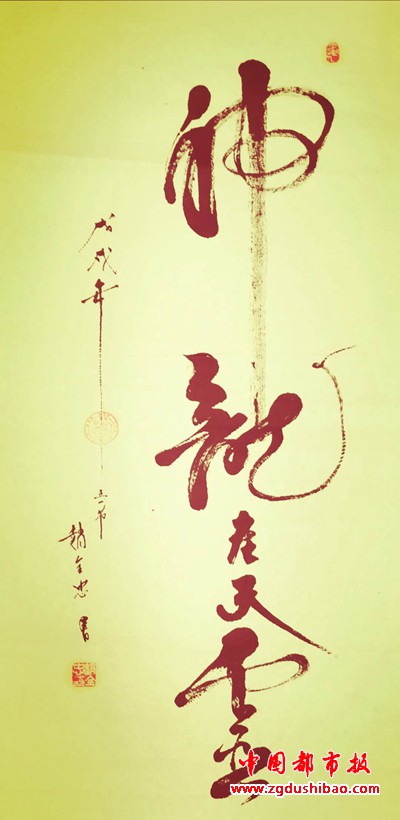 神龍在天
戊戌年
五一节
書
中国都市报
www.zgdushibao.com